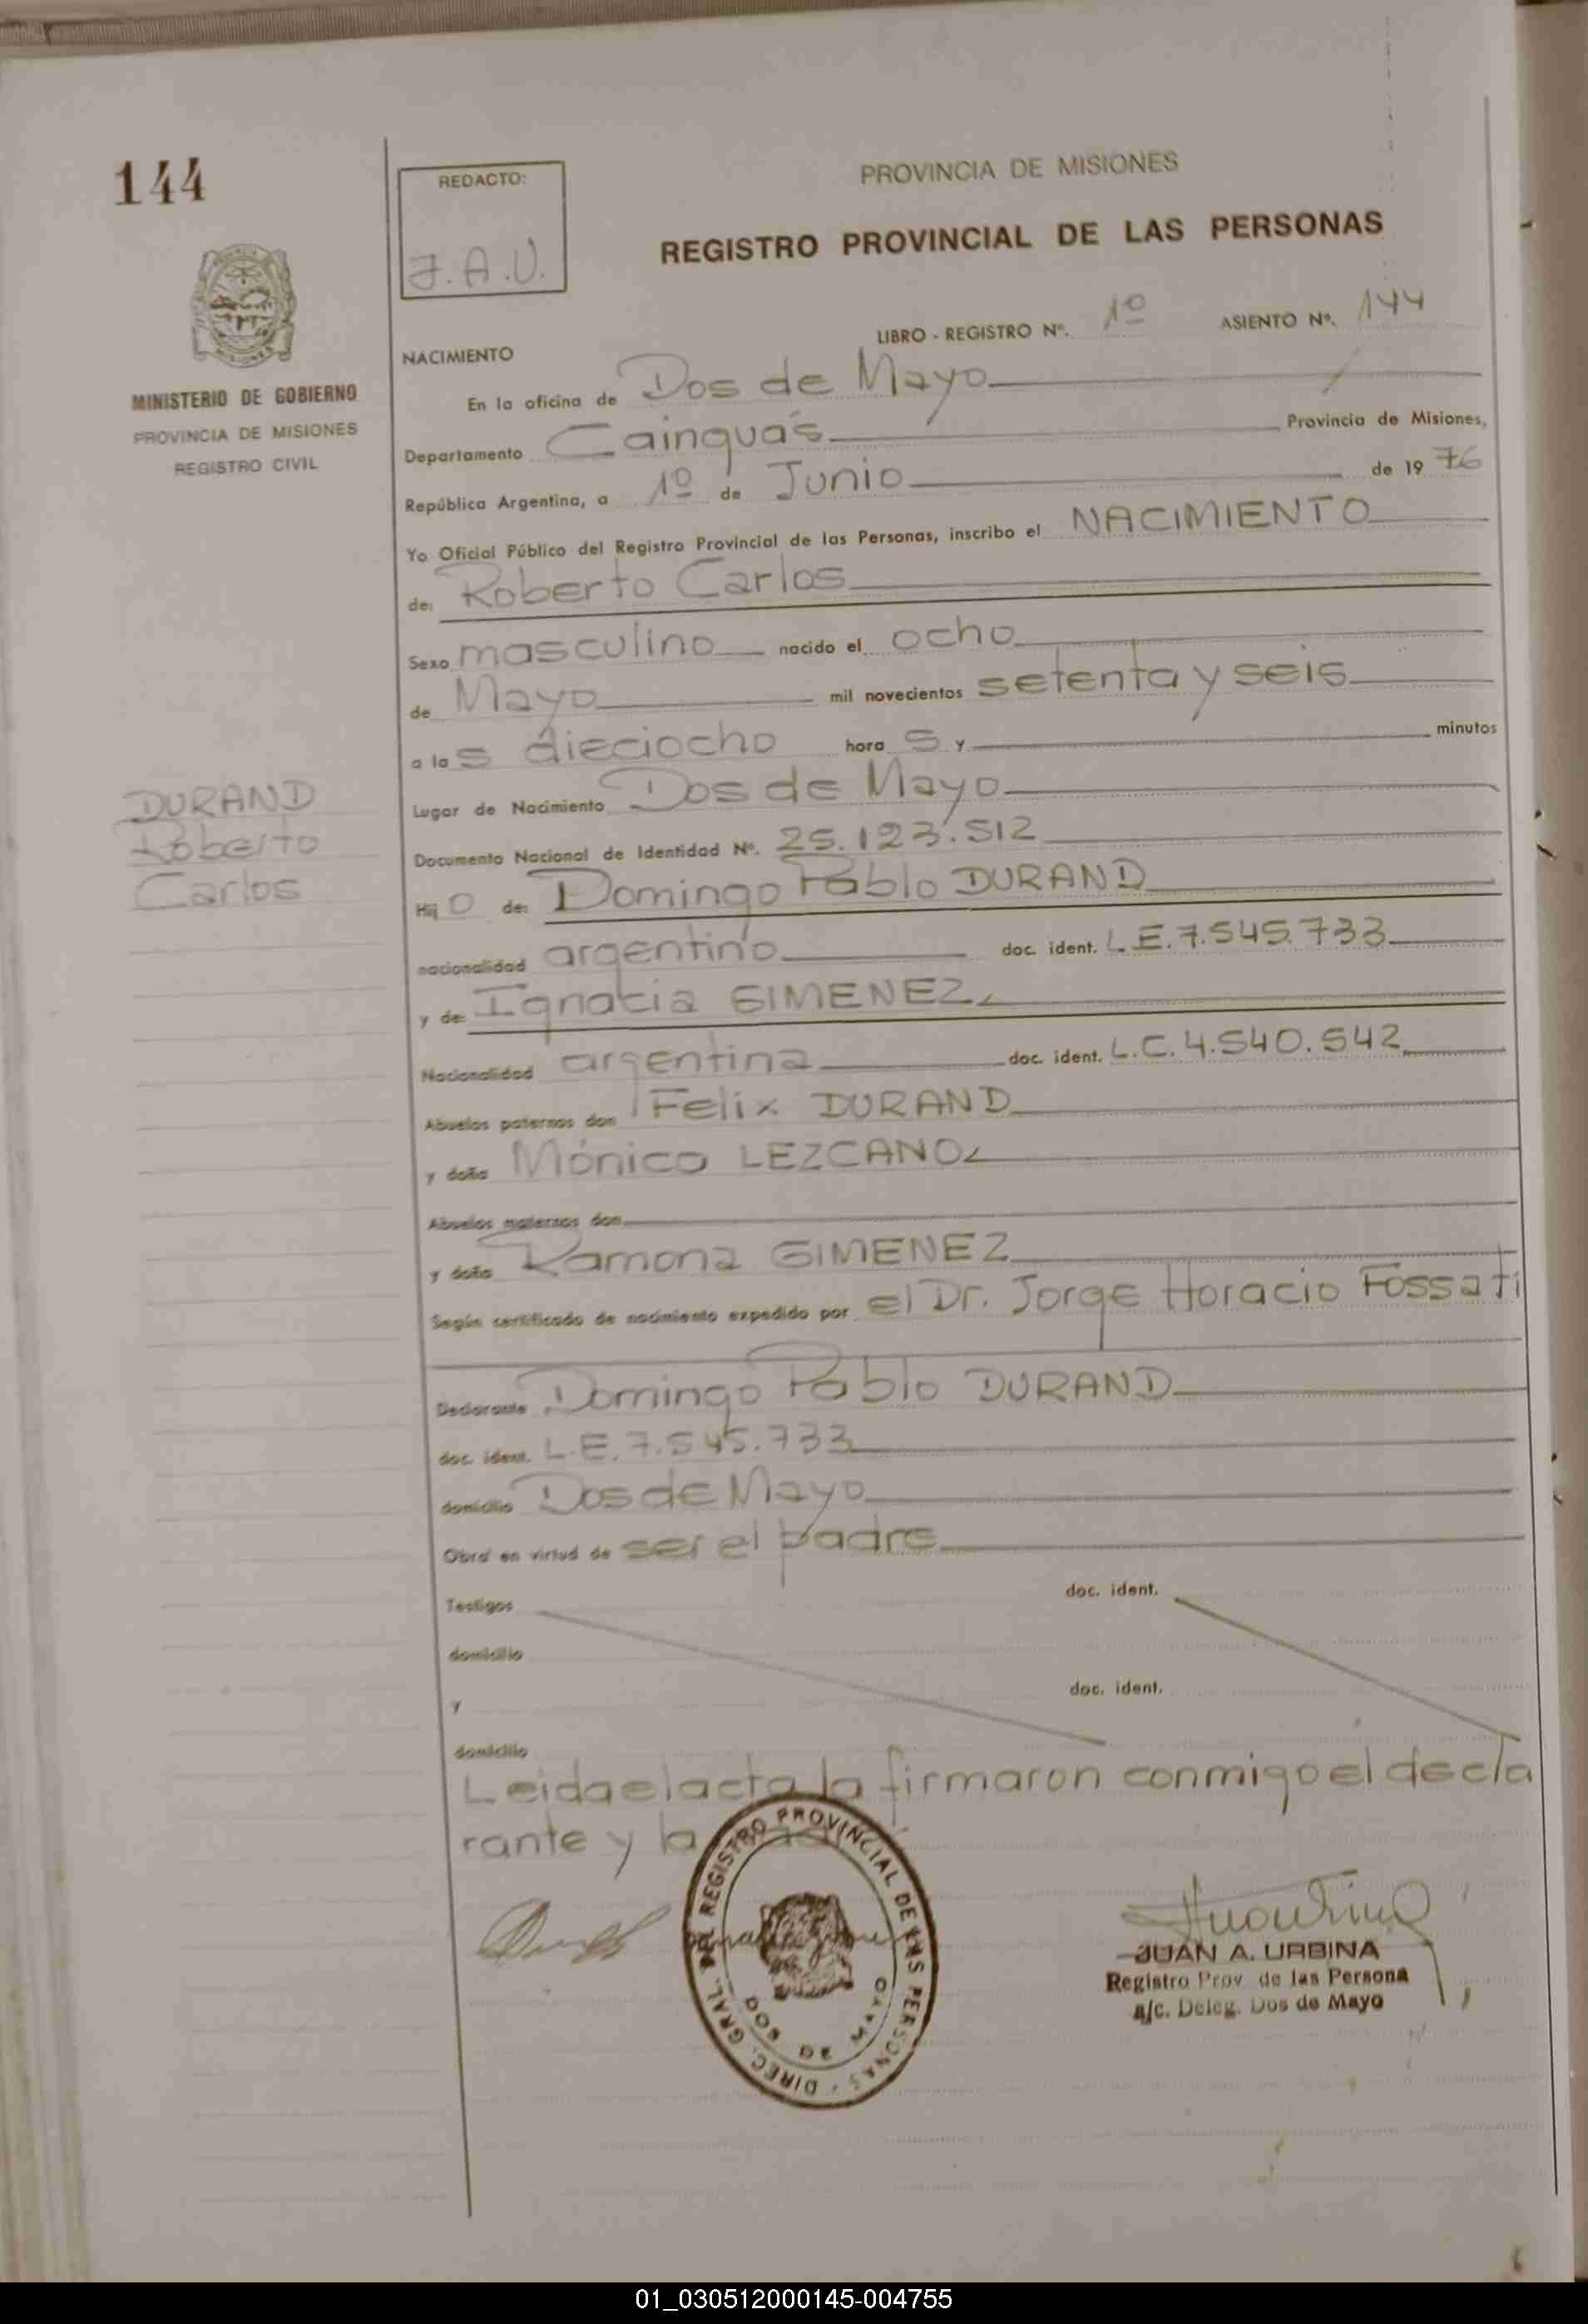 144
REDACTO:
J.A.U.
PROVINCIA DE MISIONES
REGISTRO PROVINCIAL DE LAS PERSONAS
MISIONES
MINISTERIO DE GOBIERNO
PROVINCIA DE MISIONES
REGISTRO CIVIL
LIBRO - REGISTRO Nº. 1º ASIENTO Nº. 144
NACIMIENTO
En la oficina de Dos de Mayo
Departamento Cainguás Provincia de Misiones,
República Argentina, a 1º de Junio de 1976
Yo Oficial Público del Registro Provincial de las Personas, inscribo el NACIMIENTO
de: Roberto Carlos
Sexo masculino nacido el ocho
de Mayo mil novecientos setenta y seis
a las dieciocho horas y minutos
DURAND
Roberto
Carlos
Lugar de Nacimiento Dos de Mayo
Documento Nacional de Identidad Nº. 25.123.512
Hijo de: Domingo Pablo DURAND
nacionalidad argentino doc. ident. L.E.7.545.733
y de: Ignacia GIMENEZ
Nacionalidad argentina doc. ident. L.C.4.540.542
Abuelos paternos don Felix DURAND
y doña Mónica LEZCANO
Abuelos maternos don
y doña Ramona GIMENEZ
Según certificado de nacimiento expedido por el Dr. Jorge Horacio Fossati
Declarante Domingo Pablo DURAND
doc. ident. L.E.7.545.733
domicilio Dos de Mayo
Obra en virtud de ser el padre
Testigos doc. ident.
domicilio
y doc. ident.
domicilio
Leida el acta la firmaron conmigo el decla
rante y la
DIREC. GRAL. DEL REGISTRO PROVINCIAL DE LAS PERSONAS
DOS DE MAYO
JUAN A. URBINA
Registro Prov. de las Persona
a/c. Deleg. Dos de Mayo
01_030512000145-004755